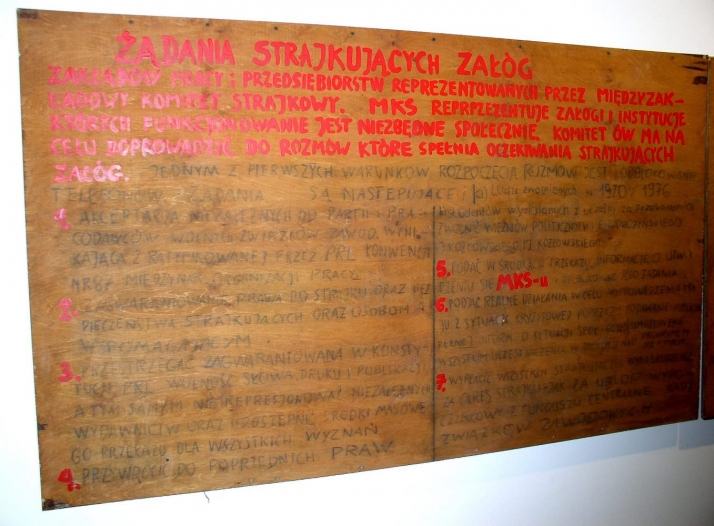 ŻĄDANIA STRAJKUJĄCYCH ZAŁÓG
ZAKŁADÓW PRACY i PRZEDSIĘBIORSTW REPREZENTOWANYCH PRZEZ MIĘDZYZAK-
ŁADOWY KOMITET STRAJKOWY. MKS REPRPREZENTUJE ZAŁOGI I INSTYTUCJE
KTÓRYCH FUNKCJONOWANIE JEST NIEZBĘDNE SPOŁECZNIE. KOMITET ÓW MA NA
CELU DOPROWADZIĆ DO ROZMÓW KTÓRE SPEŁNIĄ OCZEKIWANIA STRAJKUJĄCYCH
ZAŁÓG. JEDNYM Z PIERWSZYCH WARUNKÓW ROZPOCZĘCIA ROZMÓW JEST ODBLOKOWANIE
TELEFONÓW. ŻĄDANIA SĄ NASTĘPUJĄCE:
1. AKCEPTACJA NIEZALEŻNYCH OD PARTII I PRA-
CODAWCÓW WOLNYCH ZWIĄZKÓW ZAWOD. WYNI-
KAJĄCA Z RATYFIKOWANEJ PRZEZ PRL KONWENCJI
NR 87 MIĘDZYNAR. ORGANIZACJI PRACY
2. ZAGWARANTOWANIE PRAWA DO STRAJKU ORAZ BEZ-
PIECZEŃSTWA STRAJKUJĄCYCH ORAZ OSOBOM
WSPOMAGAJĄCYM
3. PRZESTRZEGAĆ ZAGWARANTOWANĄ W KONSTY-
TUCJI PRL WOLNOŚĆ SŁOWA, DRUKU I PUBLIKACJI
A TYM SAMYM NIE REPRESJONOWAĆ NIEZALEŻNYCH
WYDAWNICTW ORAZ UDOSTĘPNIĆ ŚRODKI MASOWE-
GO PRZEKAZU DLA WSZYSTKICH WYZNAŃ
4. PRZYWRÓCIĆ DO POPRZEDNICH PRAW
a) LUDZI ZWOLNIONYCH w 1970 i 1976
STUDENTÓW WYDALONYCH Z UCZELNI ZA PRZEKONANIA
ZWOLNIĆ WIĘŹNIÓW POLITYCZNYCH
KOZŁOWSKIEGO
5. PODAĆ W ŚRODKACH PRZEKAZU INFORMACJĘ O UTWO-
RZENIU SIĘ MKS-u ŻĄDANIA
6. PODJĄĆ REALNE DZIAŁANIA W CELU WYPROWADZENIA KRA-
JU Z SYTUACJI KRYZYSOWEJ POPRZEZ
7. WYPŁACIĆ WSZYSTKIM STRAJKUJĄCYM
ZA OKRES STRAJKU JAK ZA URLOP WYPO-
CZYNKOWY Z FUNDUSZU CENTRALNEJ RADY
ZWIĄZKÓW ZAWODOWYCH